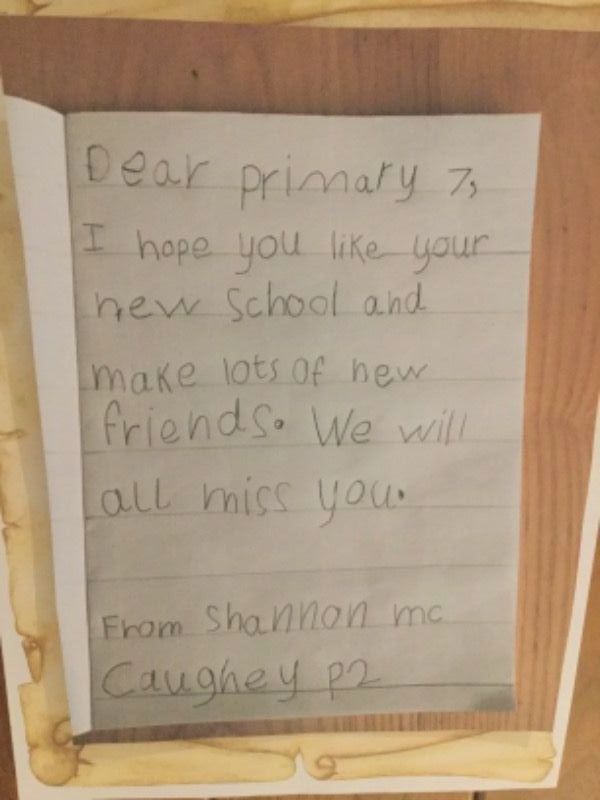 Dear primary 7,
I hope you like your
new School and
make lots of new
friends. We will
all miss you.
From Shannon mc
Caughey p2